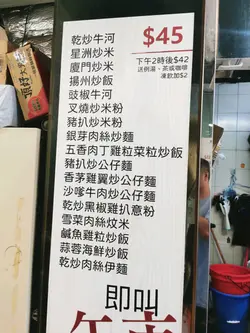 乾炒牛河
星洲炒米
廈門炒米
揚州炒飯
豉椒牛河
叉燒炒米粉
豬扒炒米粉
銀芽肉絲炒麵
五香肉丁雞粒菜粒炒飯
豬扒炒公仔麵
香茅雞翼炒公仔麵
沙嗲牛肉炒公仔麵
乾炒黑椒雞扒意粉
雪菜肉絲炆米
鹹魚雞粒炒飯
蒜蓉海鮮炒飯
乾炒肉絲伊麵
$45
下午2時後$42
送例湯、茶或咖啡
凍飲加$2
即叫